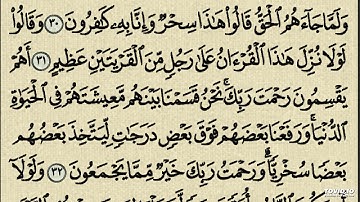 وَلَمَّا جَآءَهُمُ ٱلْحَقُّ قَالُوا۟ هَٰذَا سِحْرٌ وَإِنَّا بِهِۦ كَٰفِرُونَ ٣٠ وَقَالُوا۟
لَوْلَا نُزِّلَ هَٰذَا ٱلْقُرْءَانُ عَلَىٰ رَجُلٍ مِّنَ ٱلْقَرْيَتَيْنِ عَظِيمٍ ٣١ أَهُمْ
يَقْسِمُونَ رَحْمَتَ رَبِّكَ ۚ نَحْنُ قَسَمْنَا بَيْنَهُم مَّعِيشَتَهُمْ فِى ٱلْحَيَوٰةِ
ٱلدُّنْيَا ۚ وَرَفَعْنَا بَعْضَهُمْ فَوْقَ بَعْضٍ دَرَجَٰتٍ لِّيَتَّخِذَ بَعْضُهُم
بَعْضًا سُخْرِيًّا ۗ وَرَحْمَتُ رَبِّكَ خَيْرٌ مِّمَّا يَجْمَعُونَ ٣٢ وَلَوْلَآ